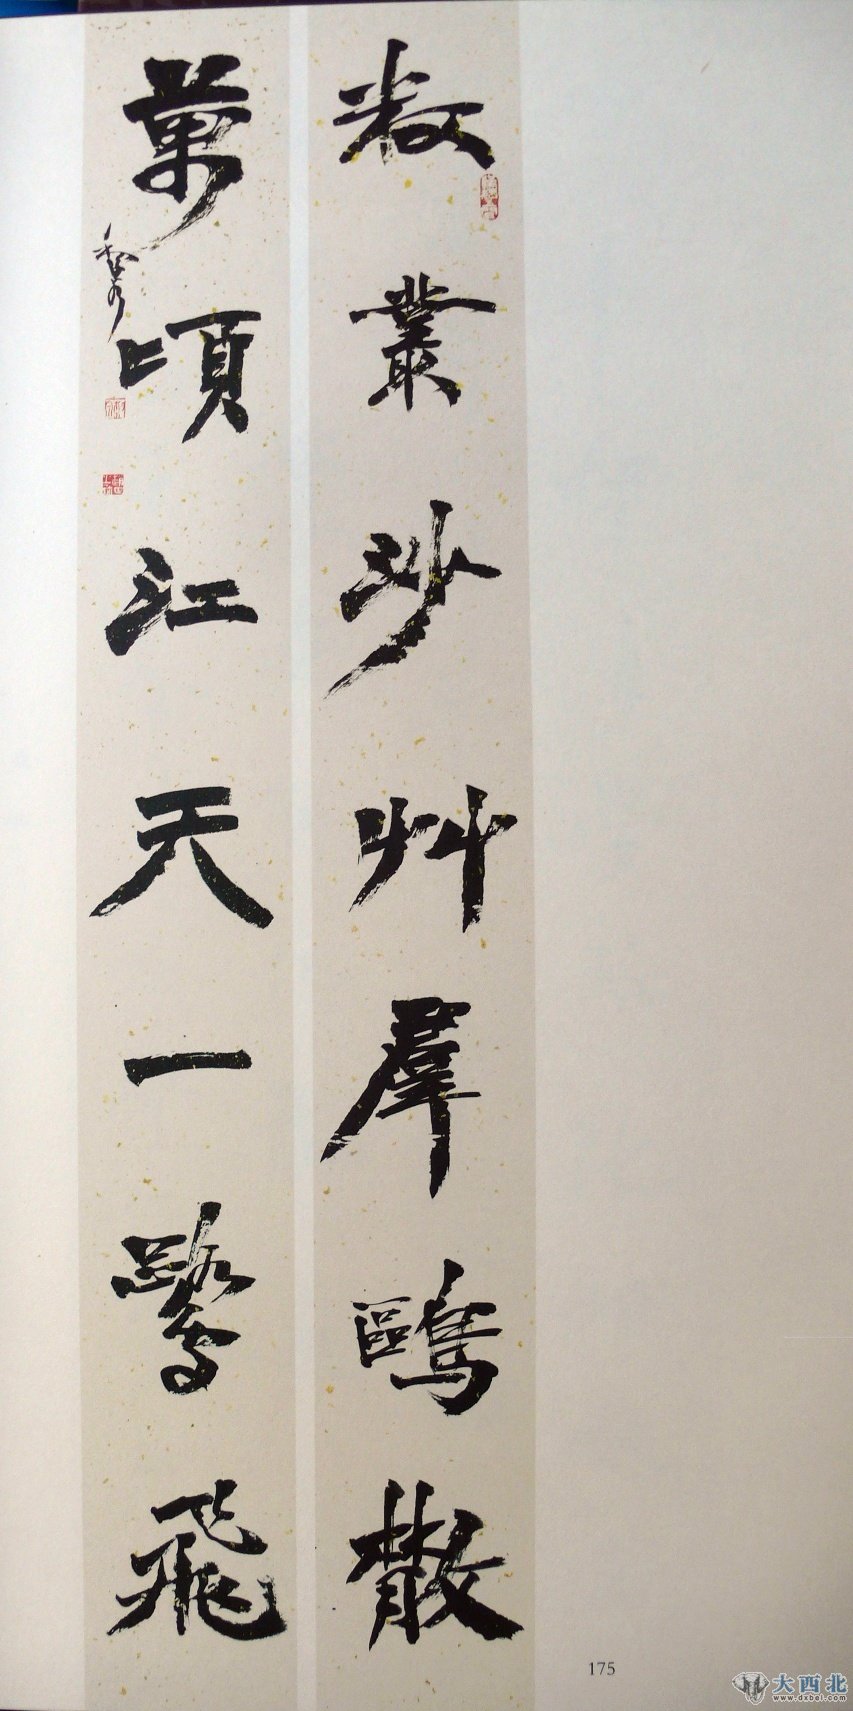 数叢沙艸羣鷗散
萬頃江天一鷺飛
175
大西北
www.dxbei.com